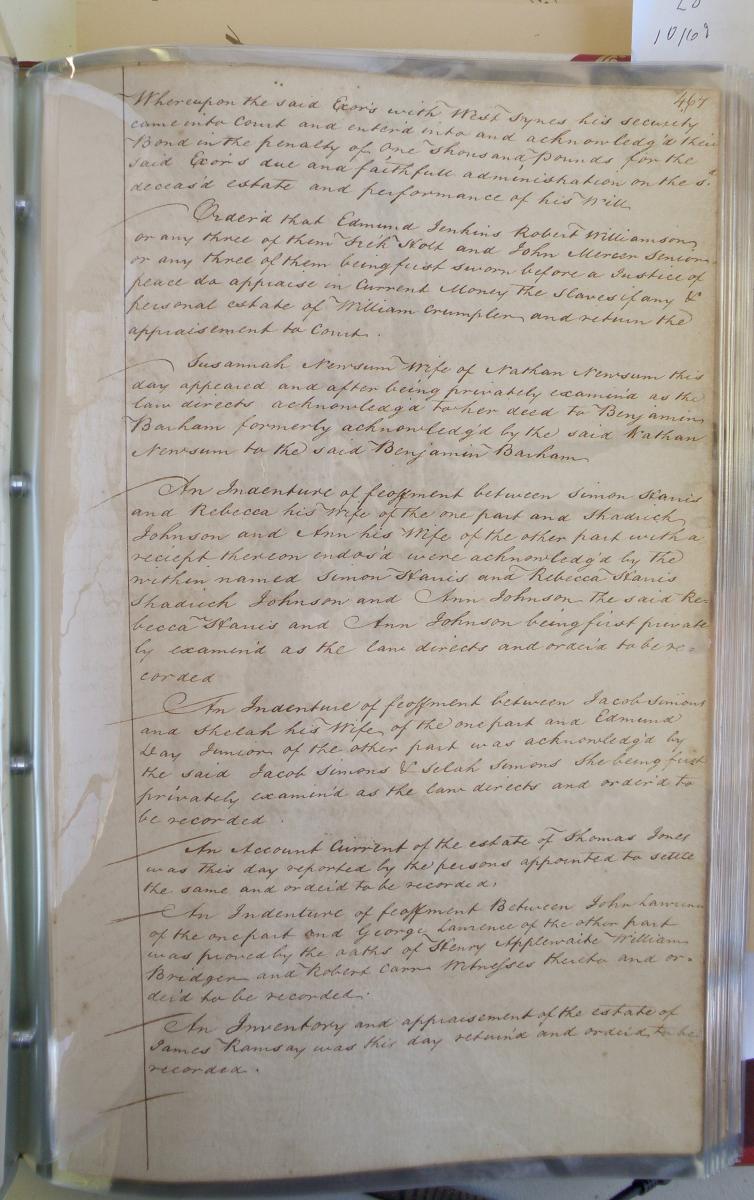 10/68
467
Whereupon the said Exors with West Synes his security
came into Court and enterd into and acknowledg'd their
Bond in the penalty of One thousand Pounds for the
said Exors due and faithfull administration on the sd.
deceas'd estate and performance of his Will
Order'd that Edmund Jenkins Robert Williamson
or any three of them Holt and John Mercer Senior
or any three of them being first sworn before a Justice of
peace do appraise in Current Money the Slaves if any &
personal estate of William Crumpler and return the
appraisement to Court.
Susannah Newsum Wife of Nathan Newsum this
day appeared and after being privately examin'd as the
law directs acknowledg'd to her deed to Benjamin
Barham formerly acknowledg'd by the said Nathan
Newsum to the said Benjamin Barham
An Indenture of feoffment between Simon Harris
and Rebecca his Wife of the one part and Shadrich
Johnson and Ann his Wife of the other part with a
reciept thereon endos'd were acknowledg'd by the
within named Simon Harris and Rebecca Harris
Shadrich Johnson and Ann Johnson the said Re-
becca Harris and Ann Johnson being first private
ly examin'd as the law directs and order'd to be re-
corded
An Indenture of feoffment between Jacob Simons
and Shelah his Wife of the one part and Edmund
Day Junior of the other part was acknowledg'd by
the said Jacob Simons & Selah Simons She being first
privately examin'd as the law directs and order'd to
be recorded.
An Account Current of the estate of Thomas Jones
was this day reported by the persons appointed to settle
the same and order'd to be recorded.
An Indenture of feoffment Between John
of the one part and George Lawrence of the other part
was proved by the oaths of Henry Applewaite William
Bridger and Robert Carr Witnesses thereto and or-
der'd to be recorded.
An Inventory and appraisement of the estate of
James Ramsay was this day return'd and order'd to be
recorded.